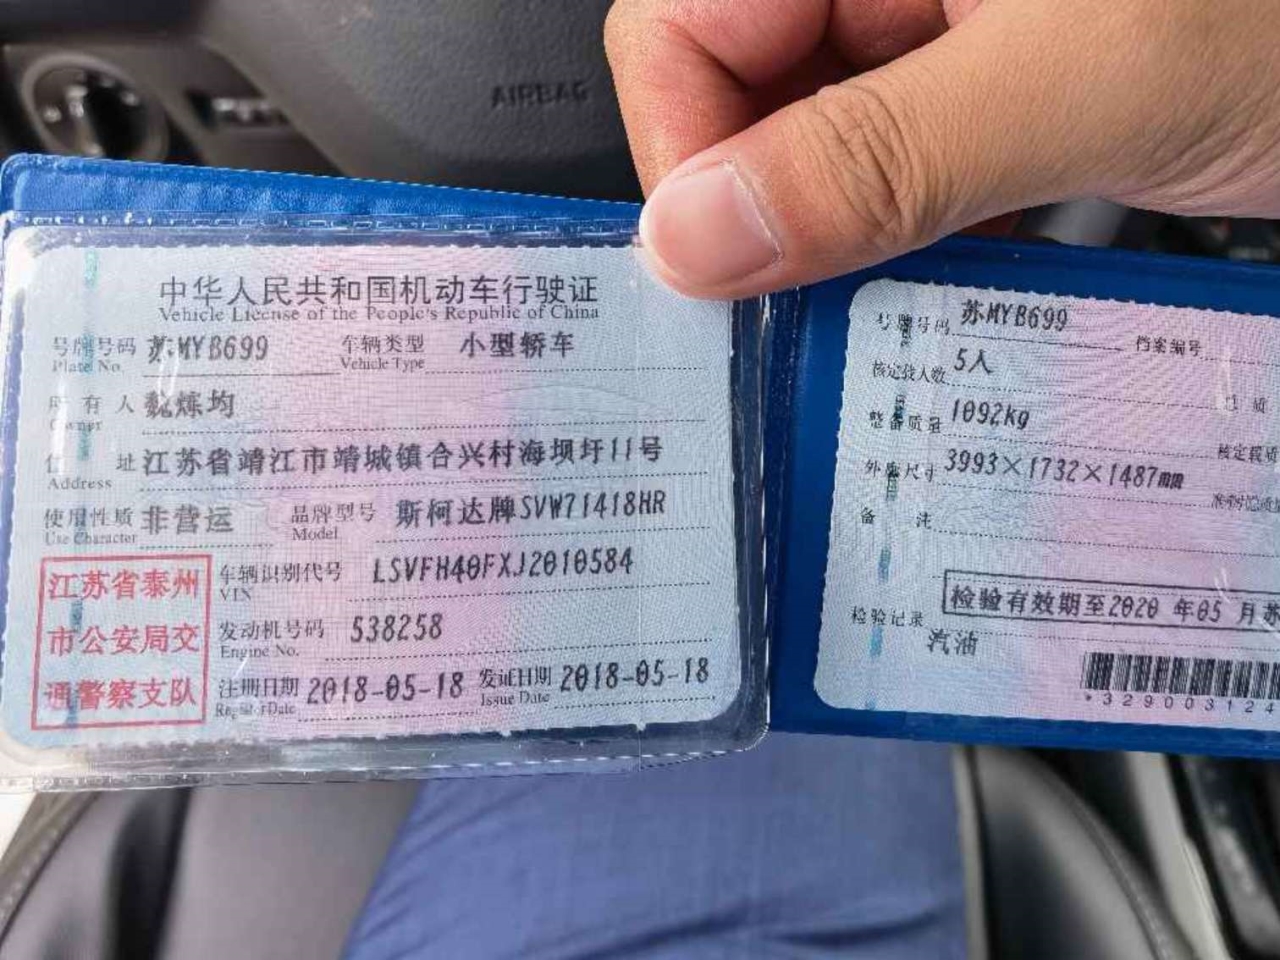 AIRBAG
中华人民共和国机动车行驶证
Vehicle License of the People's Republic of China
号牌号码 苏MYB699 车辆类型 小型轿车
Plate No. Vehicle Type
所有人 魏炼均
Owner
住址 江苏省靖江市靖城镇合兴村海坝圩11号
Address
使用性质 非营运 品牌型号 斯柯达牌SVW71418HR
Use Character Model
江苏省泰州
市公安局交
通警察支队
车辆识别代号 LSVFH40FXJ2010584
VIN
发动机号码 538258
Engine No.
注册日期 2018-05-18 发证日期 2018-05-18
Register Date Issue Date
号牌号码 苏MYB699 档案编号
核定载人数 5人
整备质量 1092kg 核定载质
外廓尺寸 3993×1732×1487mm
备注
检验有效期至2020年05月苏
检验记录
汽油
*329003124